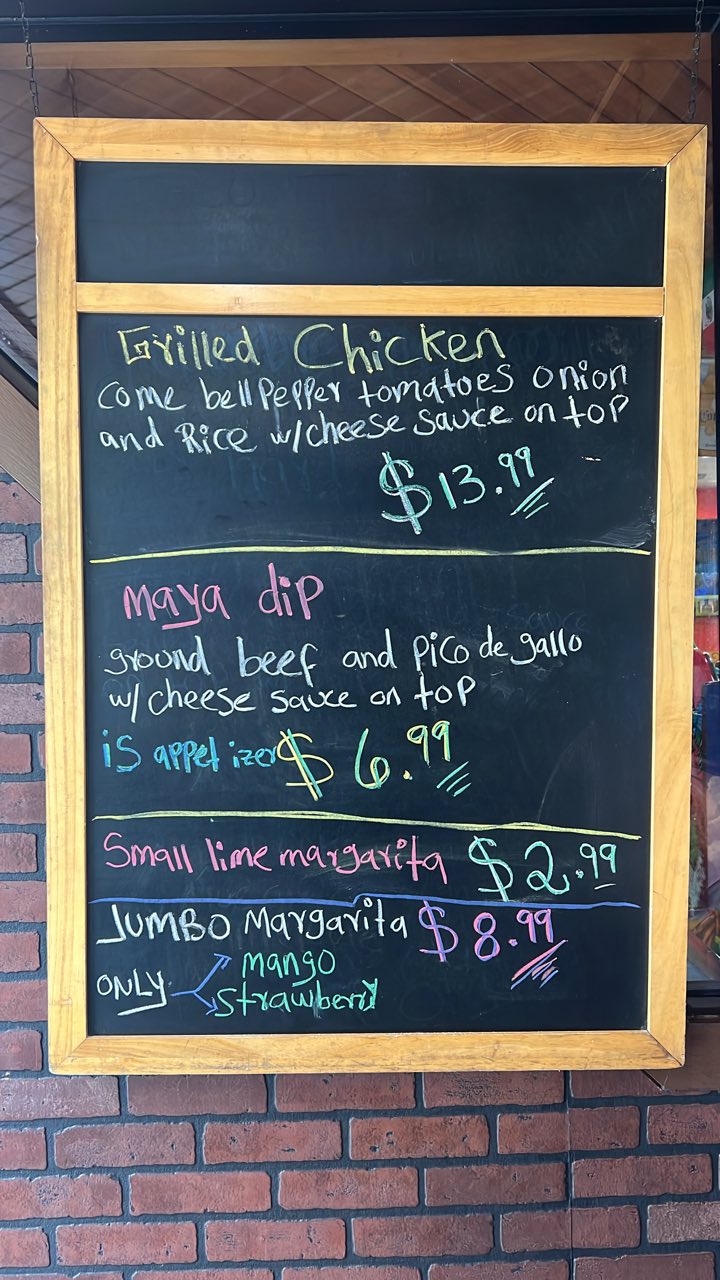 Grilled Chicken
Come bell Pepper tomatoes onion
and Rice w/cheese sauce on top
$13.99
maya dip
ground beef and pico de gallo
w/cheese sauce on top
is appetizer $6.99
Small lime margarita $2.99
JUMBO Margarita $8.99
ONLY mango
strawberry